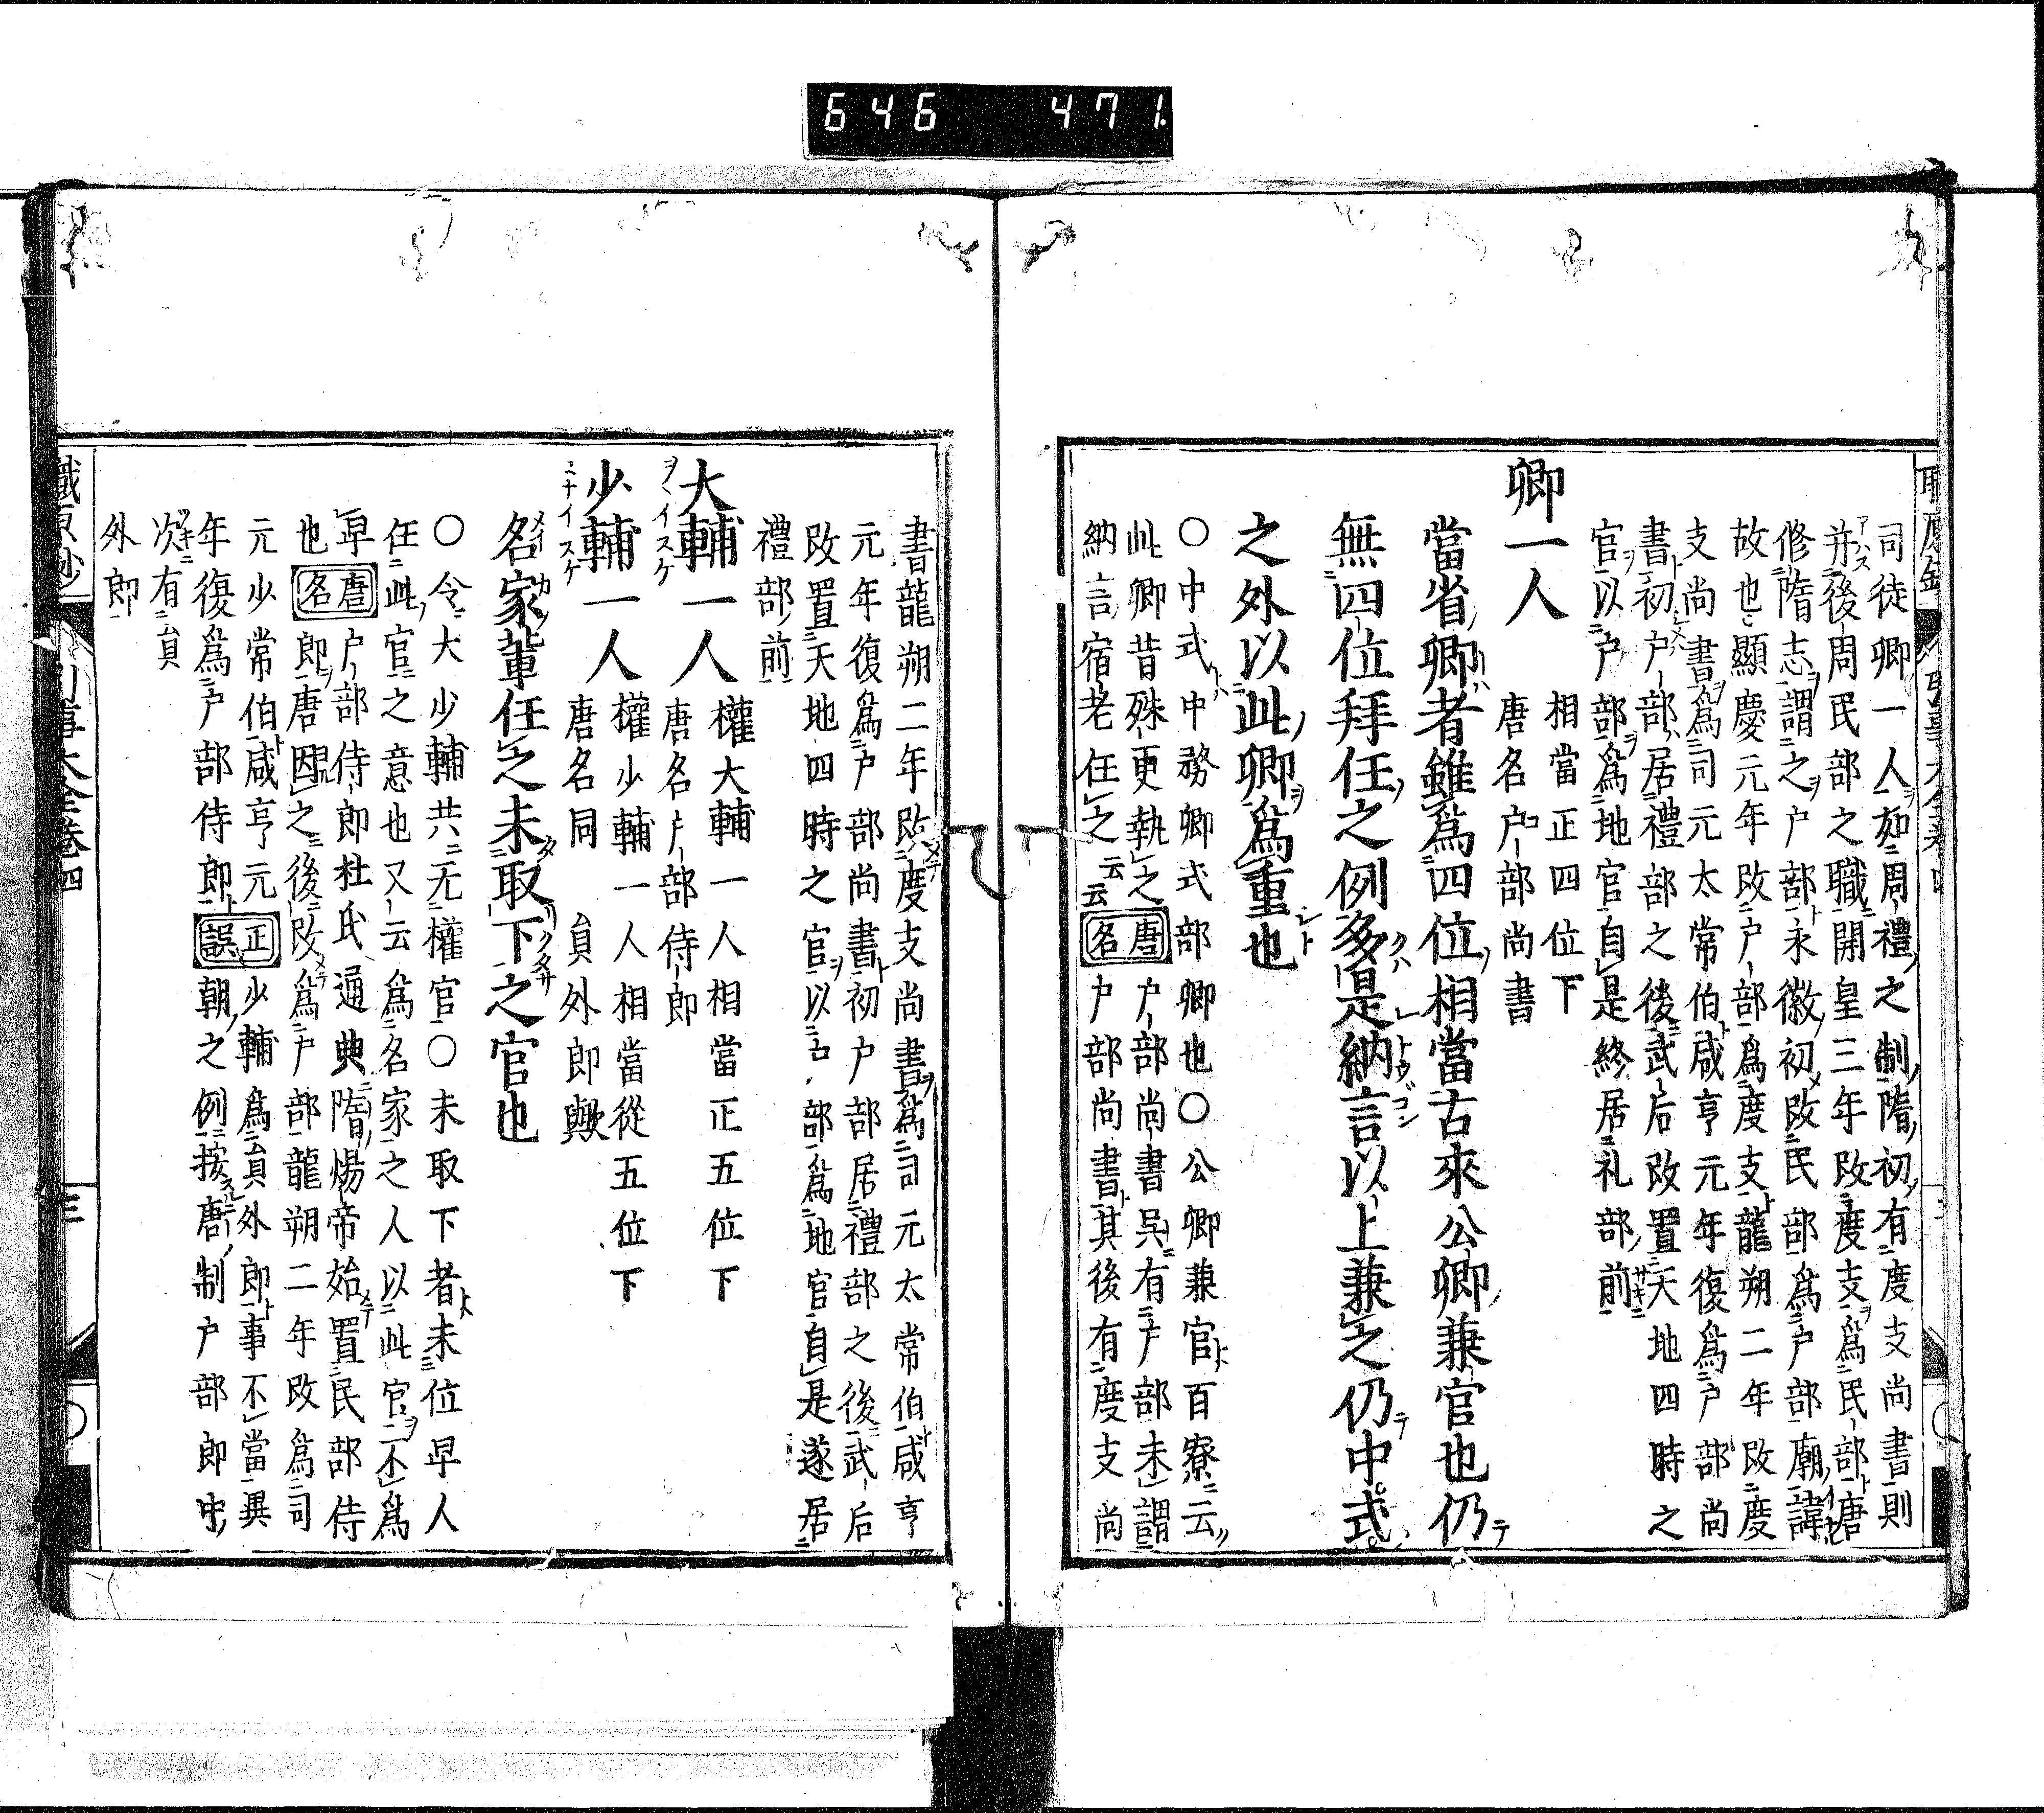 646 471
司徒卿一人如周禮之制隋初有度支尚書則
并後周民部之職開皇三年改度支爲民部唐
修隋志謂之戸部永徽初改民部爲戸部廟諱
故也顯慶元年改戸部爲度支龍朔二年改度
支尚書爲司元太常伯咸亨元年復爲戸部尚
書初戸部居禮部之後武后改置天地四時之
官以戸部爲地官自是終居礼部前
卿一人
相當正四位下
唐名戸部尚書
當省卿者雖爲四位相當古來公卿兼官也仍
無四位拜任之例多是納言以上兼之仍中式
之外以此卿爲重也
〇中式中務卿式部卿也〇公卿兼官百寮云
此卿昔殊更執之唐名戸部尚書呉有戸部未謂
納言宿老任之云云 戸部尚書其後有度支尚
書龍朔二年改度支尚書爲司元太常伯咸亨
元年復爲戸部尚書初戸部居禮部之後武后
改置天地四時之官以戸部爲地官自是遂居
禮部前
大輔一人
權大輔一人相當正五位下
唐名戸部侍郎
少輔一人
權少輔一人相當從五位下
唐名同 貟外郎歟
名家輩任之未取下之官也
〇令大少輔共无權官〇未取下者未位早人
任此官之意也又云爲名家之人以此官不爲
早唐名戸部侍郎杜氏通典隋煬帝始置民部侍
也 郎唐因之後改爲戸部龍朔二年改爲司
元少常伯咸亨元正誤少輔爲貟外郎事不當異
年復爲戸部侍郎 朝之例按唐制戸部郎中
次有貟
外郎
職原抄 引事大全卷四 三